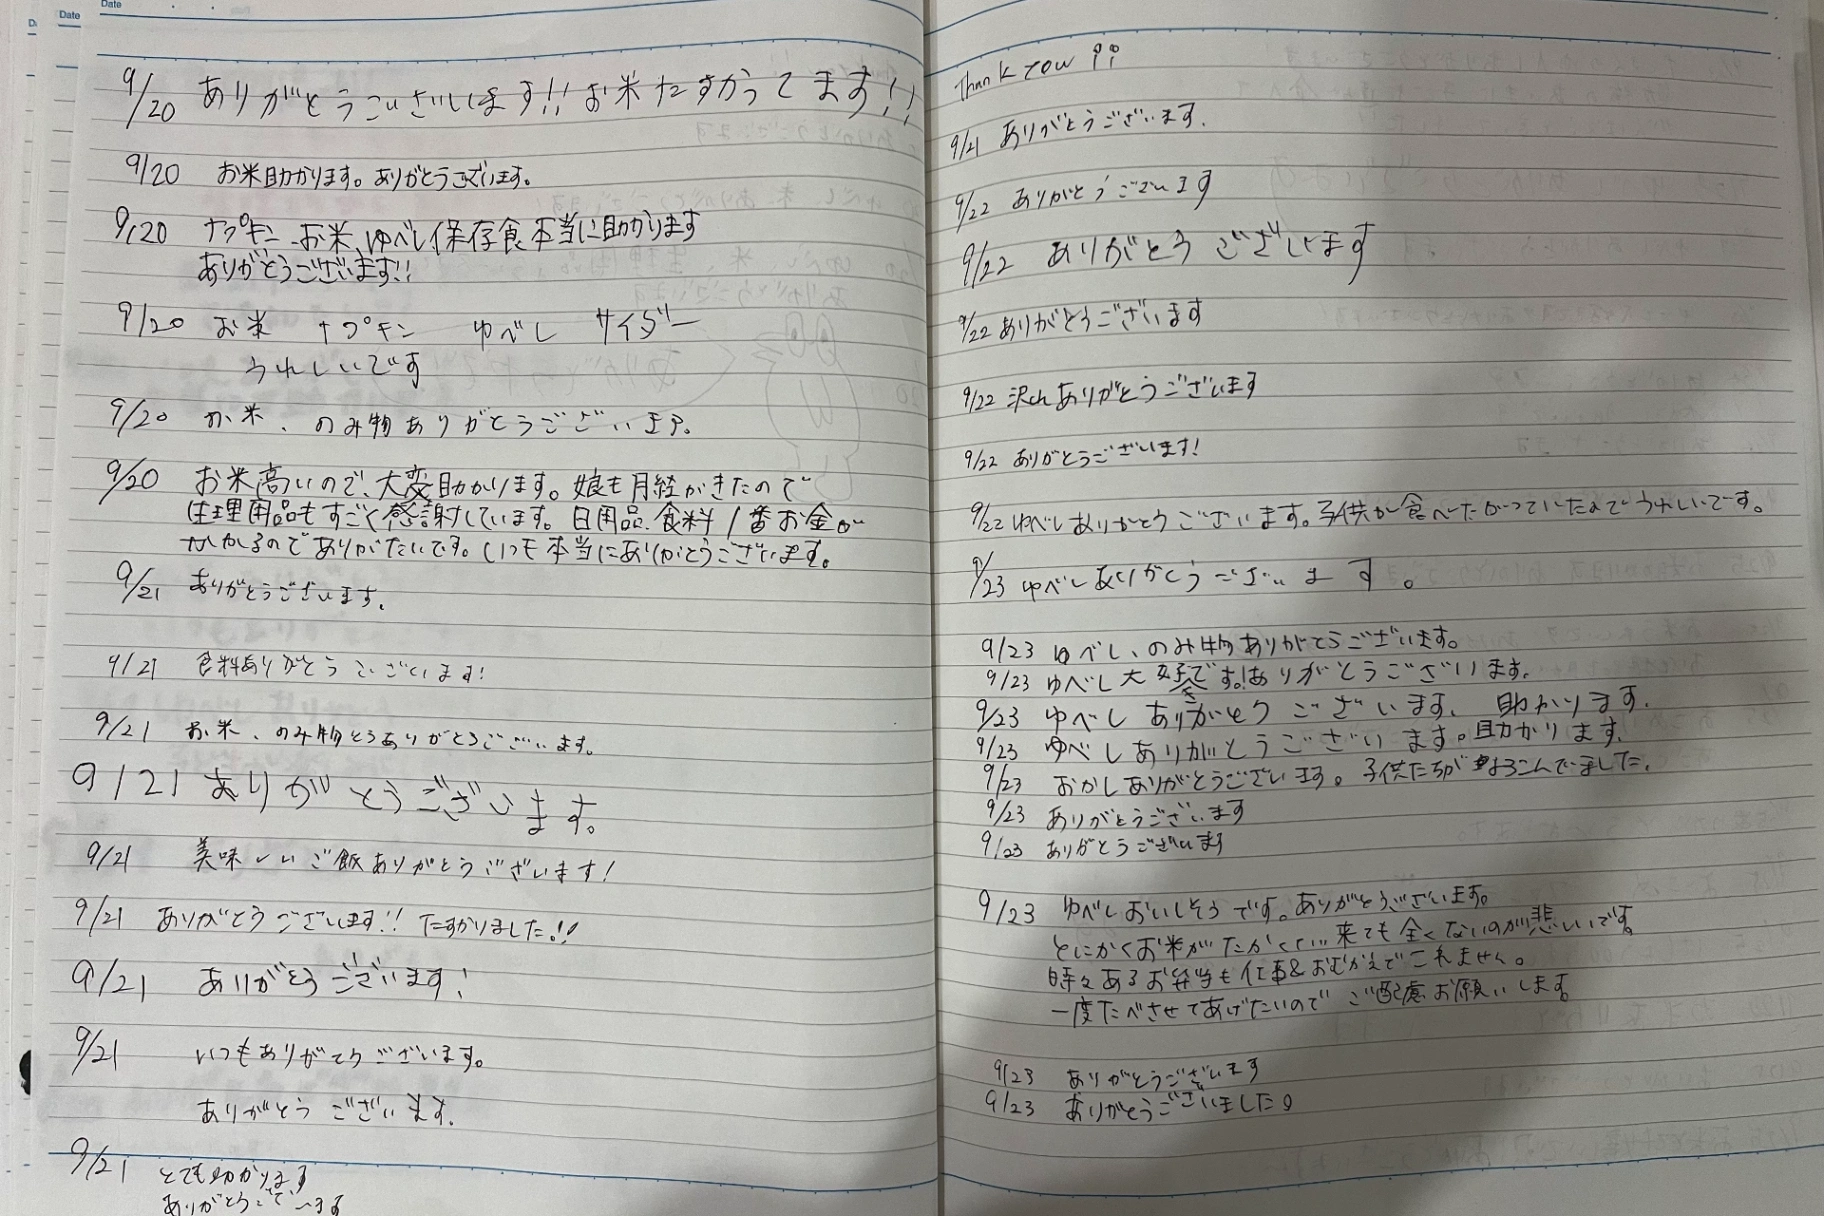 Date
Date
Date
9/20 ありがとうございます!! お米たすかってます!!
9/20 お米助かります。ありがとうございます。
9/20 ナプキン、お米、ゆべし保存食本当に助かります
ありがとうございます!!
9/20 お米 ナプキン ゆべし サイダー
うれしいです
9/20 お米、のみ物ありがとうございます。
9/20 お米高いので、大変助かります。娘も月経がきたので
生理用品もすごく感謝しています。日用品、食料1番お金が
かかるのでありがたいです。いつも本当にありがとうございます。
9/21 ありがとうございます。
9/21 食料ありがとうございます!
9/21 お米、のみ物とうありがとうございます。
9/21 ありがとうございます。
9/21 美味しいご飯ありがとうございます!
9/21 ありがとうございます!! たすかりました!!
9/21 ありがとうございます!
9/21 いつもありがとうございます。
ありがとうございます。
9/21 とても助かります
ありがとうございます
Thank you !!
9/21 ありがとうございます.
9/22 ありがとうございます
9/22 ありがとうございます
9/22 ありがとうございます
9/22 沢山ありがとうございます
9/22 ありがとうございます!
9/22 ゆべしありがとうございます。子供が食べたがっていたのでうれしいです。
9/23 ゆべしありがとうございます。
9/23 ゆべし、のみ物ありがとうございます。
9/23 ゆべし大好きです。!ありがとうございます。
9/23 ゆべしありがとうございます、助かります.
9/23 ゆべしありがとうございます。助かります.
9/23 おかしありがとうございます。子供たちがよろこんでました.
9/23 ありがとうございます
9/23 ありがとうございます
9/23 ゆべしおいしそうです。ありがとうございます。
とにかくお米がたかくて… 来ても全くないのが悲しいです。
時々あるお弁当も仕事&おむかえでこれません。
一度たべさせてあげたいので ご配慮お願いします
9/23 ありがとうございます
9/23 ありがとうございました。